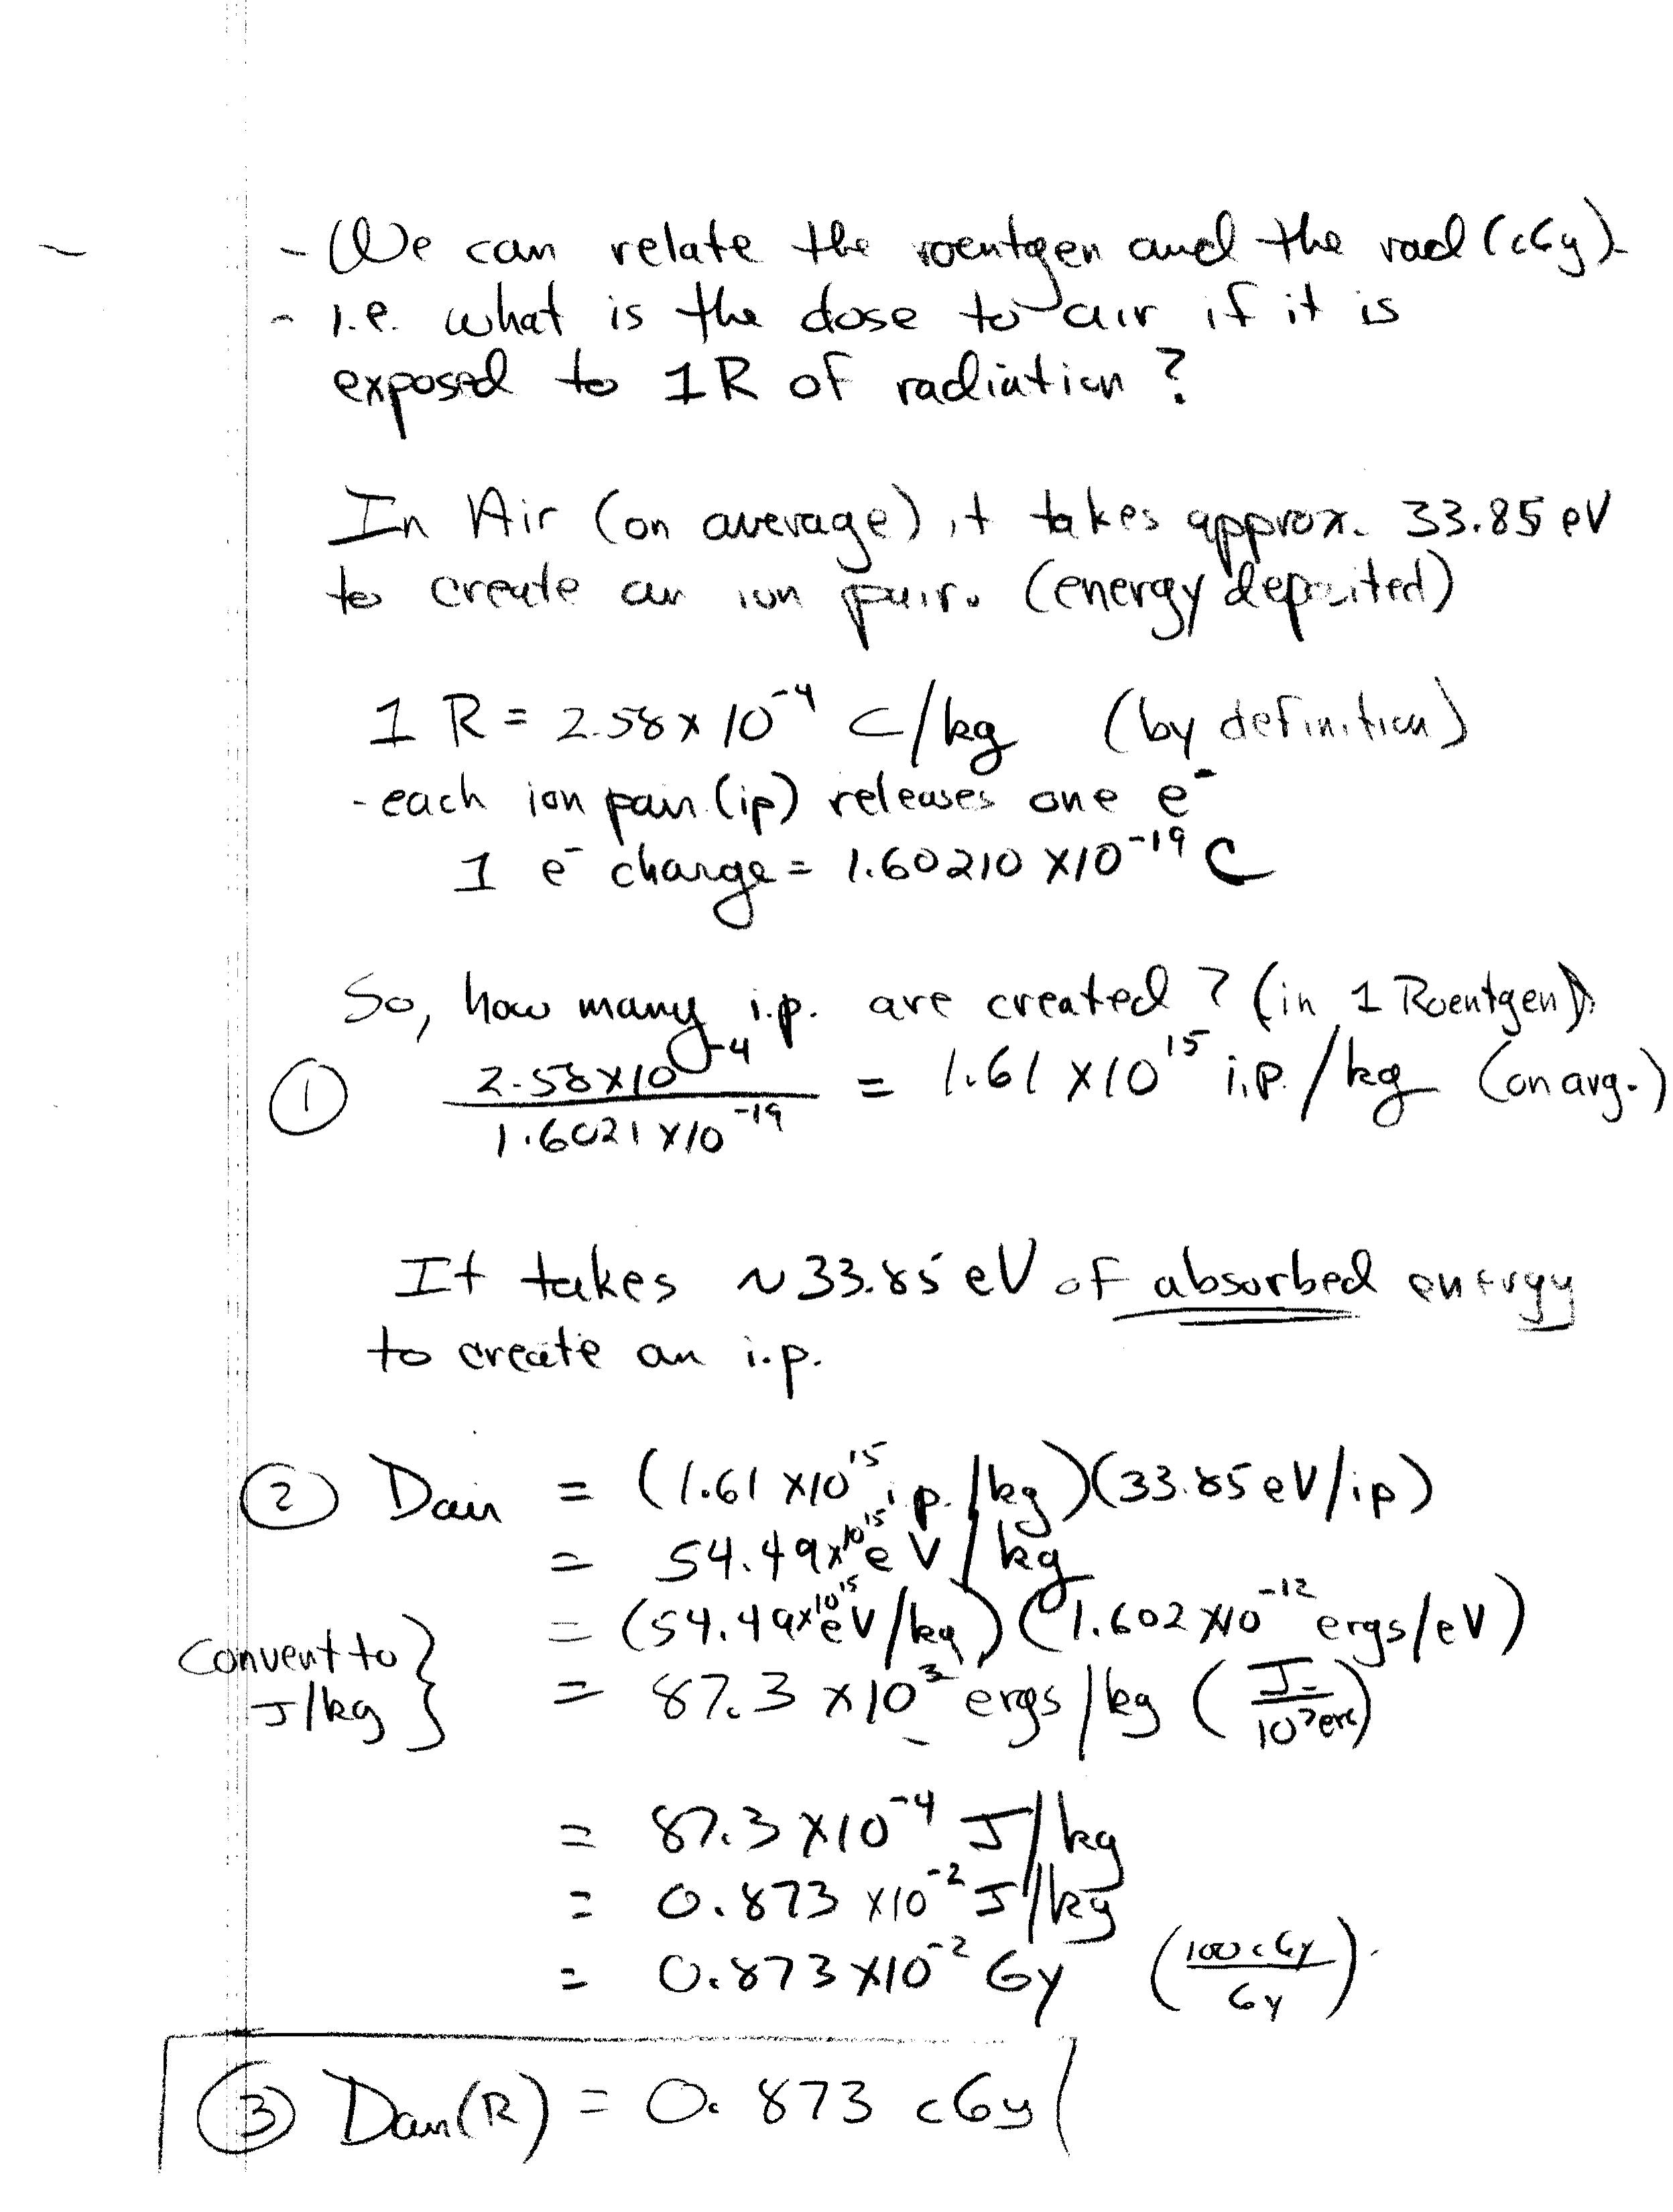 - We can relate the roentgen and the rad (cGy).
- i.e. what is the dose to air if it is
exposed to 1R of radiation?
In Air (on average) it takes approx. 33.85 eV
to create an ion pair. (energy deposited)
1 R = 2.58 x 10⁻⁴ C/kg (by definition)
- each ion pair (ip) releases one e⁻
1 e⁻ charge = 1.60210 x10⁻¹⁹ C
So, how many i.p. are created? (in 1 Roentgen)
① 2.58x10⁻⁴ / 1.6021 x10⁻¹⁹ = 1.61 x10¹⁵ i.p./kg (on avg.)
It takes ~33.85 eV of absorbed energy
to create an i.p.
② Dair = (1.61 x10¹⁵ i.p./kg)(33.85 eV/ip)
= 54.49x10¹⁵ eV/kg
= (54.49x10¹⁵ eV/kg)(1.602 x10⁻¹² ergs/eV)
Convert to
J/kg }
= 87.3 x10³ ergs/kg (J/10⁷erg)
= 87.3 x10⁻⁴ J/kg
= 0.873 x10⁻² J/kg
= 0.873 x10⁻² Gy (100 cGy/Gy)
③ Dair(R) = 0.873 cGy